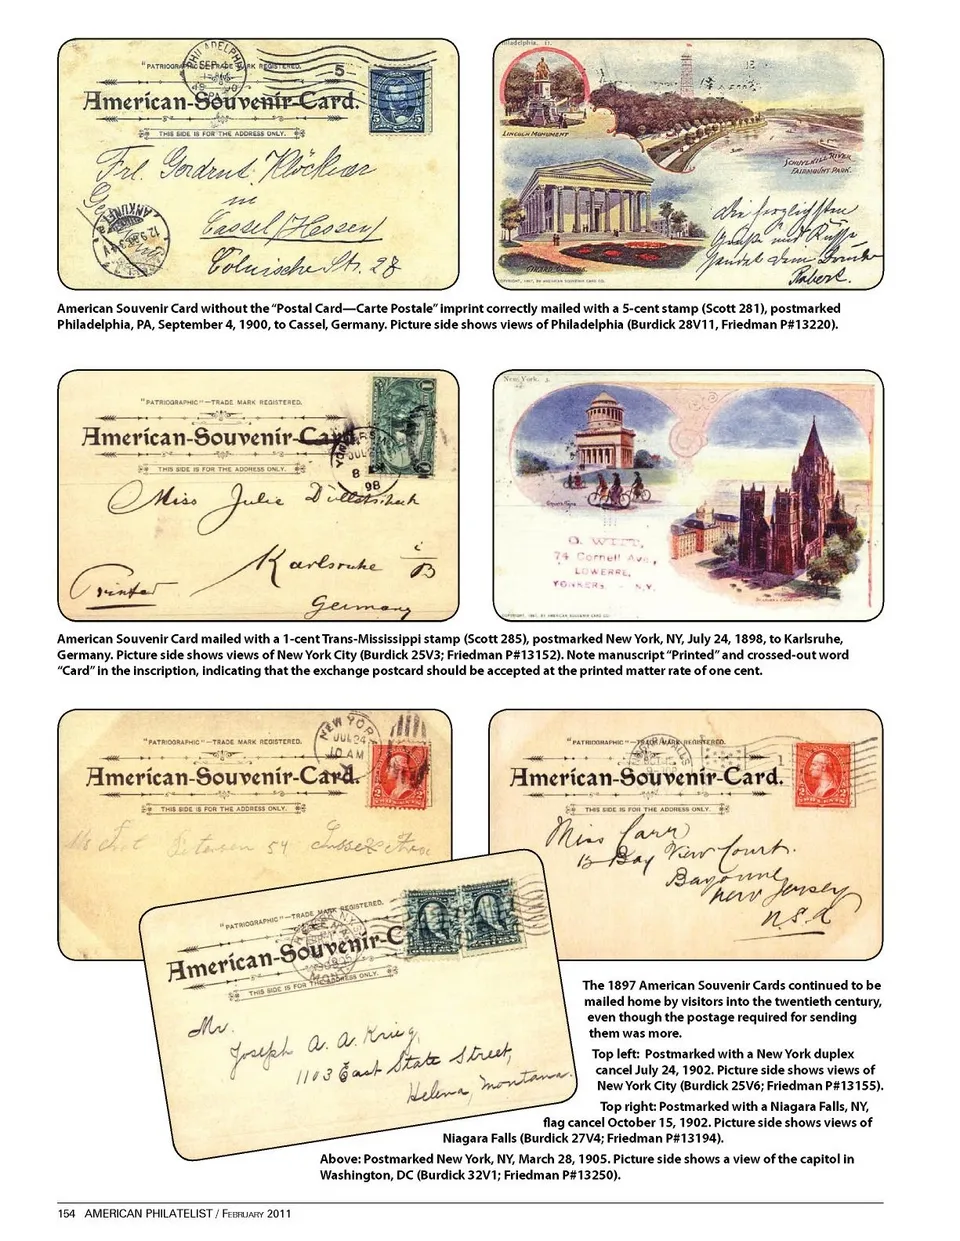 PHILADELPHIA
SEP
PA
5
"PATRIOGRAPHIC"—TRADE MARK REGISTERED.
American-Souvenir-Card.
THIS SIDE IS FOR THE ADDRESS ONLY.
Frl. Gordrut Klöckner
in
Cassel/Hessen
Cölnische Str. 28
Philadelphia. 11.
LINCOLN MONUMENT
SCHUYLKILL RIVER
FAIRMOUNT PARK.
GIRARD COLLEGE.
Die herzlichsten
Grüße und Küsse
sendet dem
Robert.
COPYRIGHT, 1897, BY AMERICAN SOUVENIR CARD CO.
American Souvenir Card without the "Postal Card—Carte Postale" imprint correctly mailed with a 5-cent stamp (Scott 281), postmarked
Philadelphia, PA, September 4, 1900, to Cassel, Germany. Picture side shows views of Philadelphia (Burdick 28V11, Friedman P#13220).
"PATRIOGRAPHIC"—TRADE MARK REGISTERED.
American-Souvenir-Card.
THIS SIDE IS FOR THE ADDRESS ONLY.
JUL
8
98
Miss Julie
Karlsruhe i/B
Printed
Germany
New York. 3.
O. WITT,
74 Cornell Ave.,
LOWERRE,
YONKERS, - N.Y.
COPYRIGHT, 1897, BY AMERICAN SOUVENIR CARD CO.
American Souvenir Card mailed with a 1-cent Trans-Mississippi stamp (Scott 285), postmarked New York, NY, July 24, 1898, to Karlsruhe,
Germany. Picture side shows views of New York City (Burdick 25V3; Friedman P#13152). Note manuscript "Printed" and crossed-out word
"Card" in the inscription, indicating that the exchange postcard should be accepted at the printed matter rate of one cent.
NEW YORK
JUL 24
10 AM
"PATRIOGRAPHIC"—TRADE MARK REGISTERED.
American-Souvenir-Card.
THIS SIDE IS FOR THE ADDRESS ONLY.
Petersen 54
"PATRIOGRAPHIC"—TRADE MARK REGISTERED.
American-Souvenir-Card.
THIS SIDE IS FOR THE ADDRESS ONLY.
Miss Carr
13 Bay View Court.
Bayonne
New Jersey
U.S.A
"PATRIOGRAPHIC"—TRADE MARK REGISTERED.
American-Souvenir-C
THIS SIDE IS FOR THE ADDRESS ONLY.
Mr.
Joseph A. A. Krieg,
1103 East State Street,
Helena, Montana.
The 1897 American Souvenir Cards continued to be
mailed home by visitors into the twentieth century,
even though the postage required for sending
them was more.
Top left: Postmarked with a New York duplex
cancel July 24, 1902. Picture side shows views of
New York City (Burdick 25V6; Friedman P#13155).
Top right: Postmarked with a Niagara Falls, NY,
flag cancel October 15, 1902. Picture side shows views of
Niagara Falls (Burdick 27V4; Friedman P#13194).
Above: Postmarked New York, NY, March 28, 1905. Picture side shows a view of the capitol in
Washington, DC (Burdick 32V1; Friedman P#13250).
154 AMERICAN PHILATELIST / FEBRUARY 2011